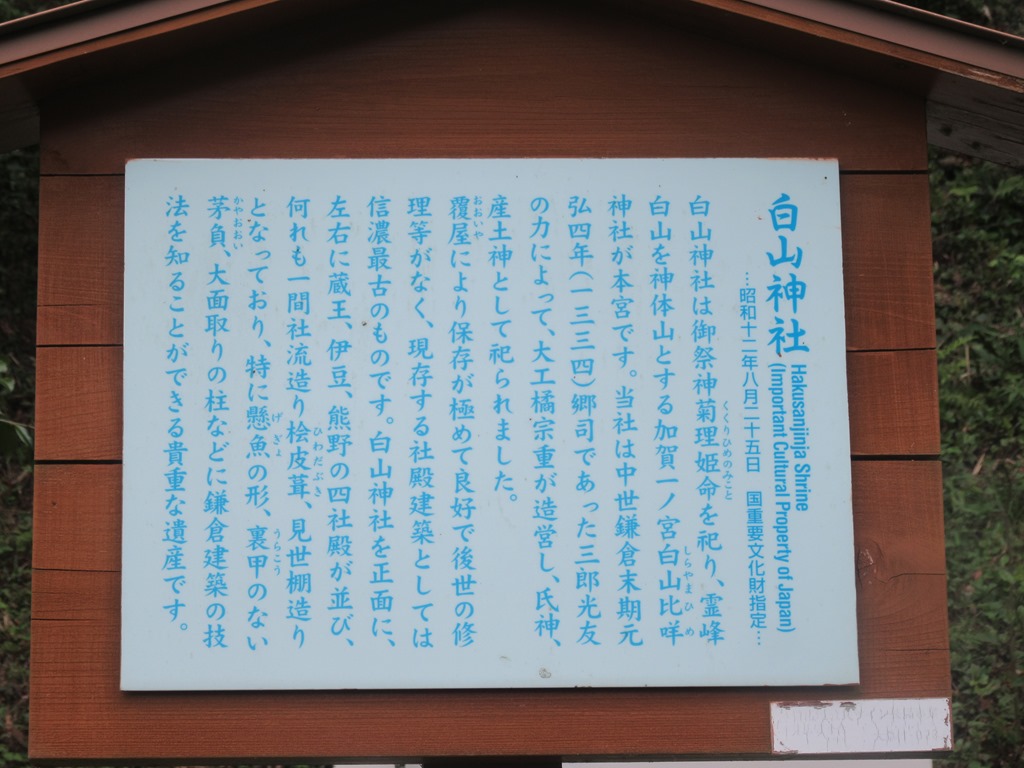 白山神社
Hakusanjinja Shrine
(Important Cultural Property of Japan)
…昭和十二年八月二十五日 国重要文化財指定…
白山神社は御祭神菊理姫命を祀り、霊峰
くくりひめのみこと
白山を神体山とする加賀一ノ宮白山比咩
しらやまひめ
神社が本宮です。当社は中世鎌倉末期元
弘四年(一三三四)郷司であった三郎光友
の力によって、大工橘宗重が造営し、氏神、
産土神として祀られました。
覆屋により保存が極めて良好で後世の修
おおいや
理等がなく、現存する社殿建築としては
信濃最古のものです。白山神社を正面に、
左右に蔵王、伊豆、熊野の四社殿が並び、
何れも一間社流造り桧皮葺、見世棚造り
ひわだぶき
となっており、特に懸魚の形、裏甲のない
げぎょ
うらこう
茅負、大面取りの柱などに鎌倉建築の技
かやおおい
法を知ることができる貴重な遺産です。